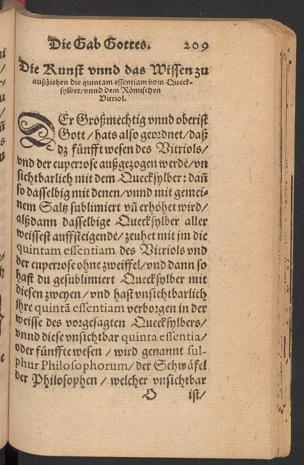 Die Gab Gottes. 209
Die Kunst vnnd das Wissen zu
außziehen die quintam essentiam vom Queck-
sylber/vnnd dem Römischen
Vitriol.
DEr Großmechtig vnnd oberist
Gott/hats also geordnet/daß
dz fünfft wesen des Vitriols/
vnd der cuperose außgezogen werde/vn
sichtbarlich mit dem Quecksylber: dañ
so dasselbig mit denen/vnnd mit gemei-
nem Saltz sublimiert vñ erhöhet wird/
alßdann dasselbige Quecksylber aller
weissest auffsteigende/zeuhet mit jm die
quintam essentiam des Vitriols vnd
der cuperose ohne zweiffel/vnd dann so
hast du gesublimiert Quecksylber mit
diesen zweyen/vnd hast vnsichtbarlich
jhre quintã essentiam verborgen in der
weisse des vorgesagten Quecksylbers/
vnnd diese vnsichtbar quinta essentia/
oder fünffte wesen/wird genannt sul-
phur Philosophorum/der Schwäfel
der Philosophen/welcher vnsichtbar
O ist/